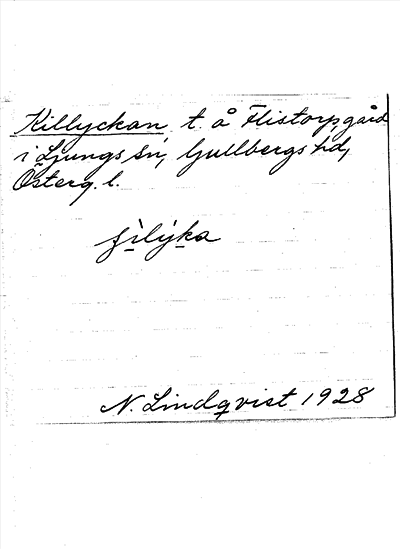 Killyckan t. å Flistorp, gård
i Ljungs sn, Gullbergs hd,
Österg. l.
fìlýka
N. Lindqvist 1928